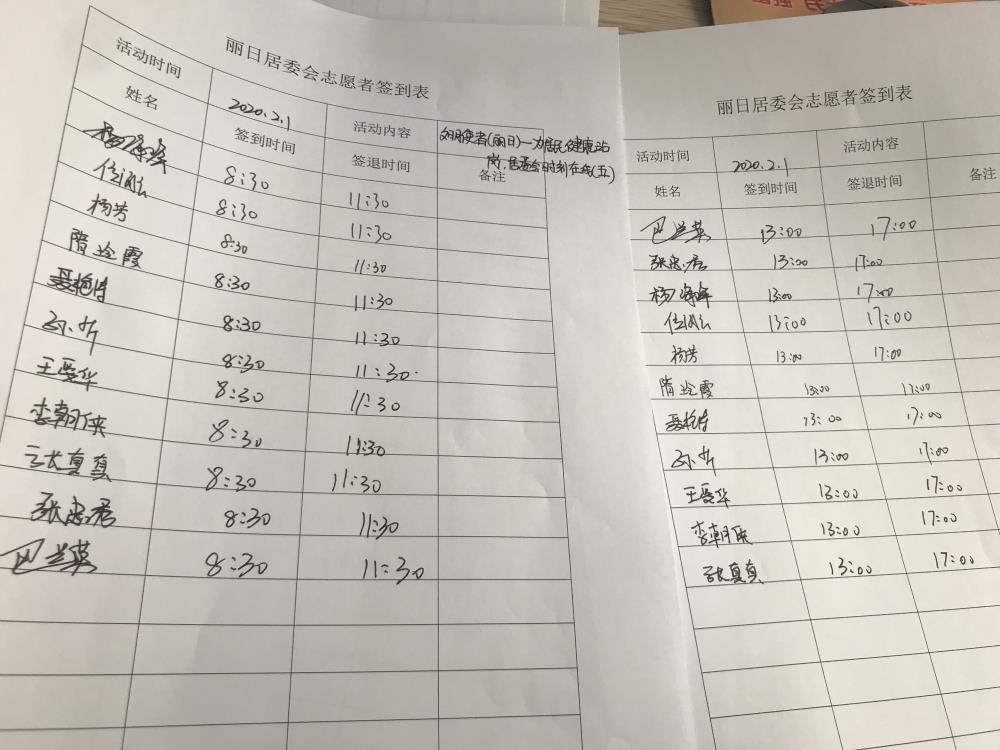 丽日居委会志愿者签到表
活动时间 2020.2.1 活动内容 (丽日)一为居民健康站
岗,居委会时刻在线(五)
姓名 签到时间 签退时间 备注
8:30 11:30
8:30 11:30
杨芳 8:30 11:30
隋玲霞 8:30 11:30
8:30 11:30
8:30 11:30
王爱华 8:30 11:30
李朝侠 8:30 11:30
张真真 8:30 11:30
张忠君 8:30 11:30
巴兰英 8:30 11:30
丽日居委会志愿者签到表
活动时间 2020.2.1 活动内容
姓名 签到时间 签退时间 备注
巴兰英 13:00 17:00
张忠君 13:00 17:00
杨海峰 13:00 17:00
13:00 17:00
杨芳 13:00 17:00
隋玲霞 13:00 17:00
13:00 17:00
13:00 17:00
王爱华 13:00 17:00
李朝侠 13:00 17:00
张真真 13:00 17:00